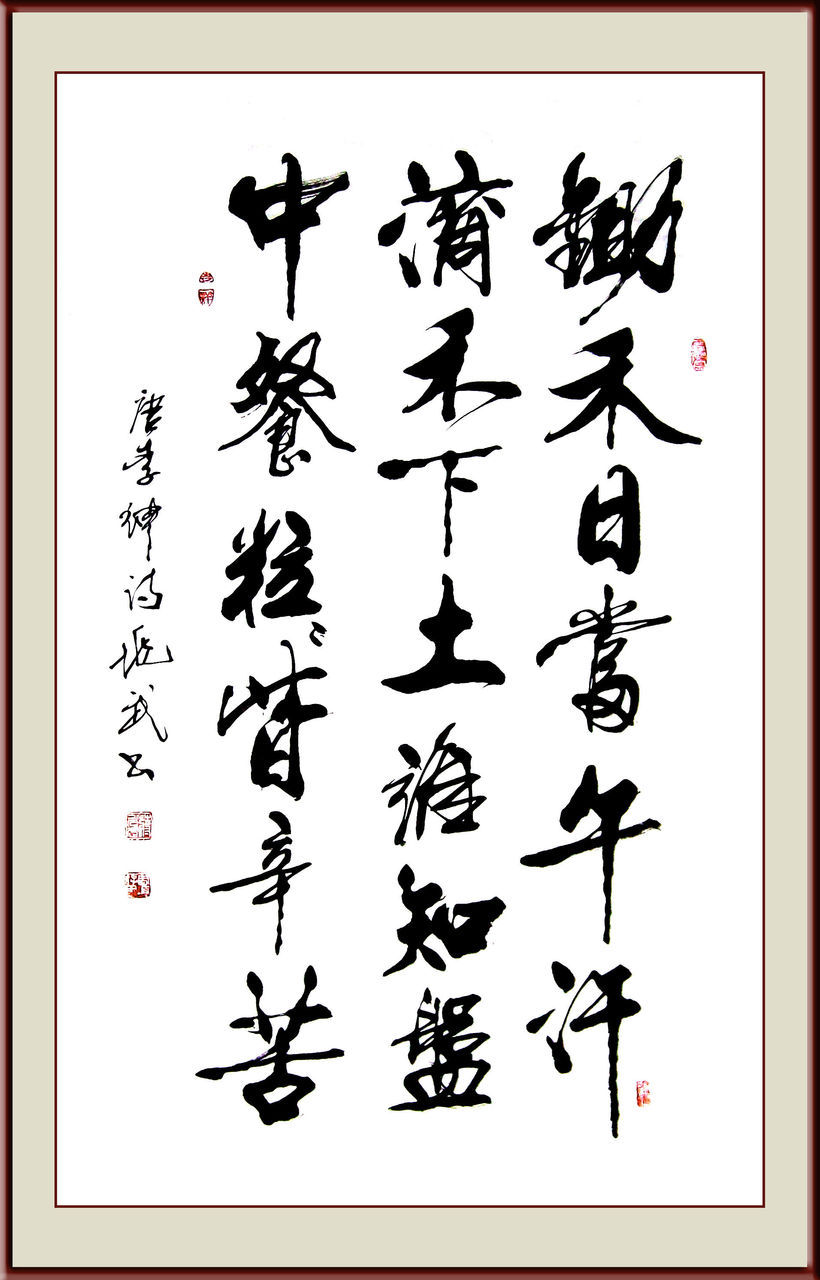 鋤禾日當午汗
滴禾下土誰知盤
中餐粒々皆辛苦
唐李绅诗武书